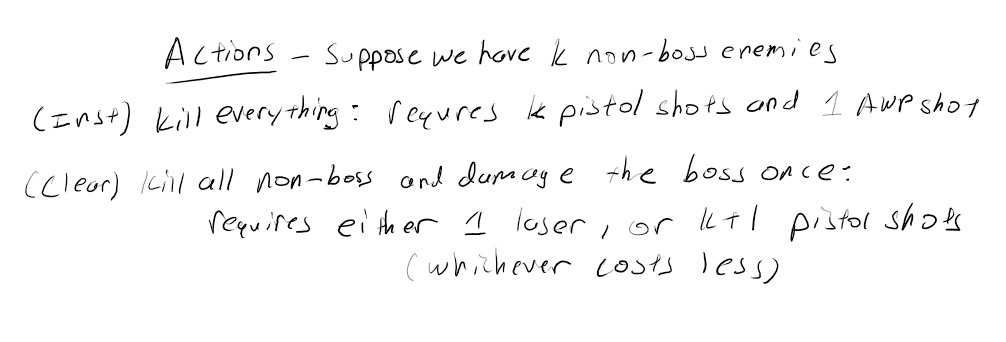 Actions - Suppose we have k non-boss enemies
(Inst) kill everything: requres k pistol shots and 1 AWP shot
(Clear) kill all non-boss and damage the boss once:
requires either 1 laser, or k+1 pistol shots
(whichever costs less)